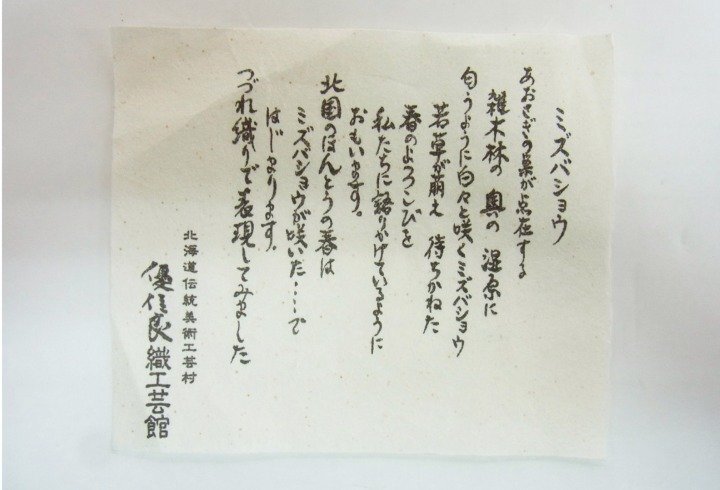 ミズバショウ
あおさぎの巣が点在する
雑木林の奥の湿原に
匂うように白々と咲くミズバショウ
若草が萌え 待ちかねた
春のよろこびを
私たちに語りかけているように
おもいます。
北国のほんとうの春は
ミズバショウが咲いた……で
はじまります。
つづれ織りで表現してみました
北海道伝統美術工芸村
優佳良織工芸館